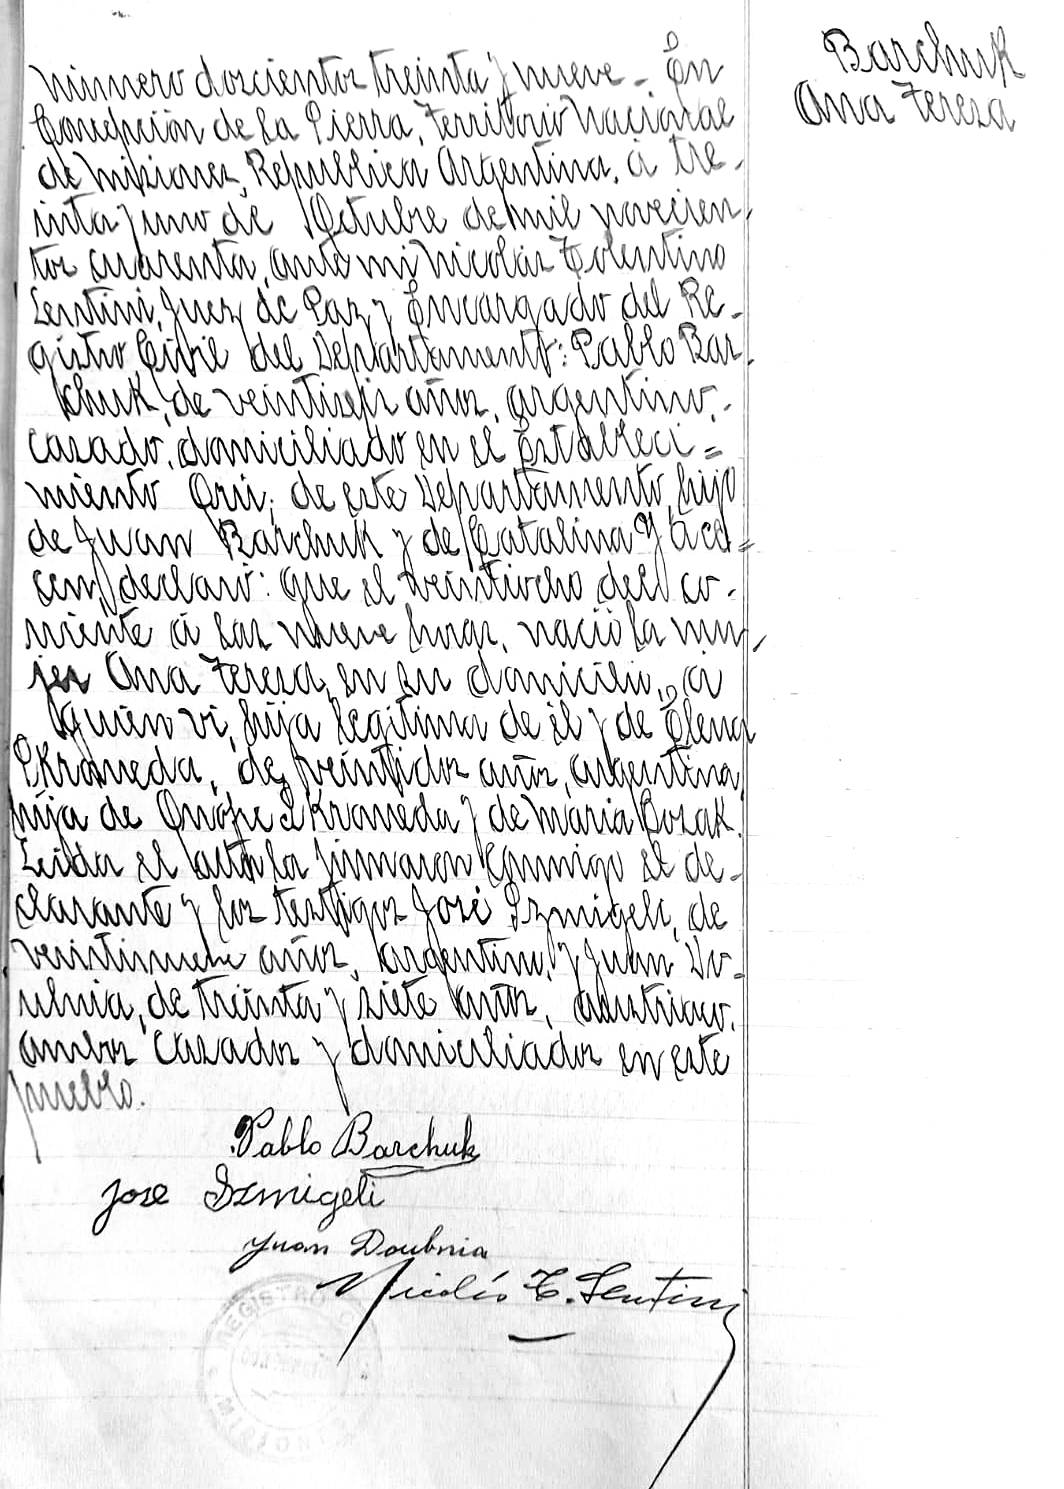 Barchuk
Ana Teresa
Número doscientos treinta y nueve - En
Concepción de la Sierra, Territorio Nacional
de Misiones, República Argentina, á tre-
inta y uno de Octubre de mil novecien-
tos cuarenta, ante mi Nicolás Tolentino
Lentini, Juez de Paz y Encargado del Re-
gistro Civil del Departamento: Pablo Bar-
chuk, de veintiseis años, argentino,
casado, domiciliado en el Estableci=
miento Orú, de este Departamento, hijo
de Juan Barchuk y de Catalina
declaró: que el veintiocho del co-
rriente á las nueve horas, nació la mu-
jer Ana Teresa, en su domicilio, á
quien vi, hija legítima de él y de Elena
Skromeda, de veintidos años, argentina,
hija de Onofre Skromeda y de María Cozak.
Leida el acta la firmaron conmigo el de-
clarante y los testigos José Szmigeli, de
veintinueve años, argentino, y Juan Do-
ubnia, de treinta y siete años, austriaco,
ambos casados y domiciliados en este
pueblo.
Pablo Barchuk
Jose Szmigeli
Juan Doubnia
Nicolás T. Lentini
REGISTRO